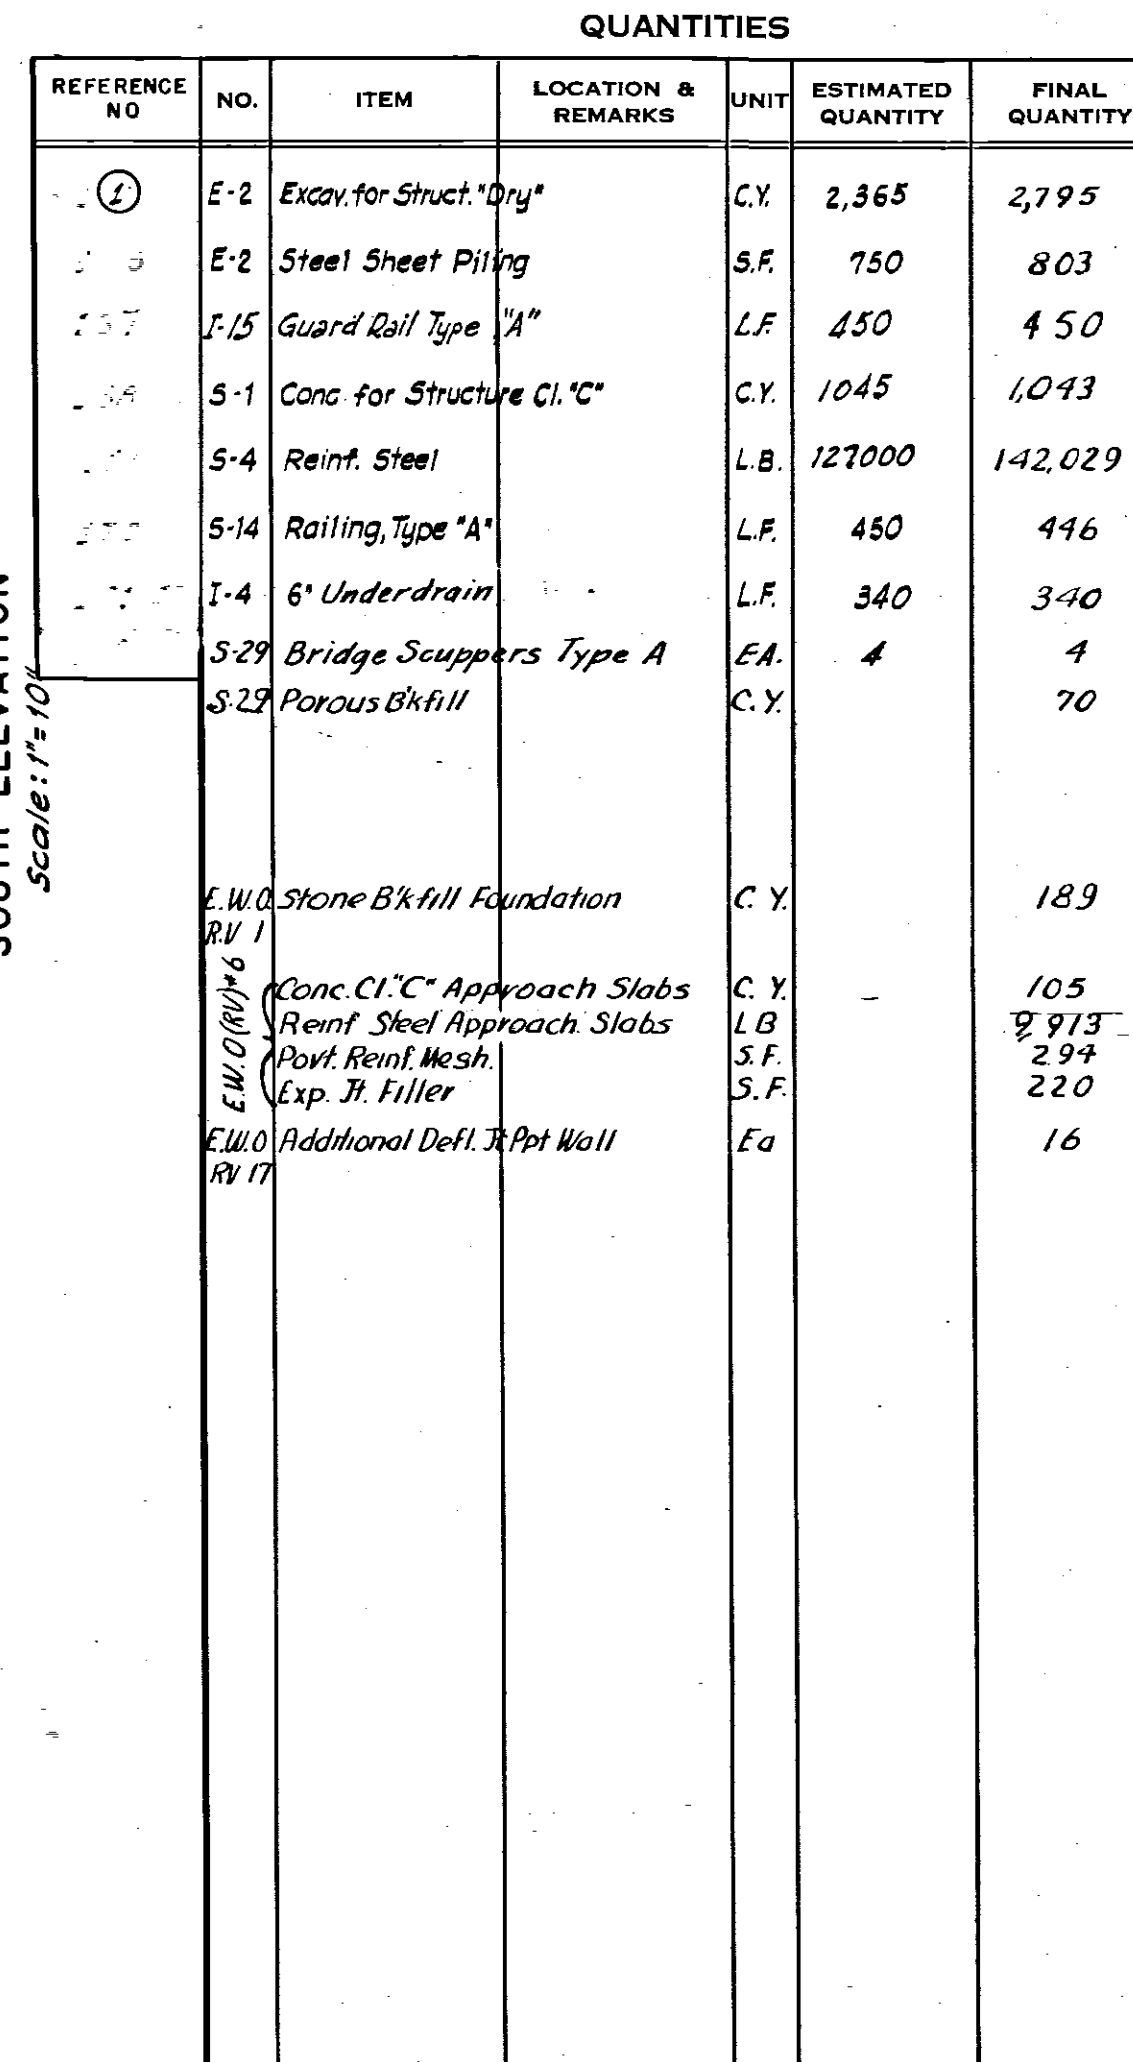 QUANTITIES
REFERENCE NO NO. ITEM LOCATION & REMARKS UNIT ESTIMATED QUANTITY FINAL QUANTITY
1 E-2 Excav. for Struct. "Dry" C.Y. 2,365 2,795
E-2 Steel Sheet Piling S.F. 750 803
I-15 Guard Rail Type "A" L.F. 450 450
S-1 Conc. for Structure Cl. "C" C.Y. 1045 1,043
S-4 Reinf. Steel L.B. 127000 142,029
S-14 Railing, Type "A" L.F. 450 446
I-4 6" Underdrain L.F. 340 340
S-29 Bridge Scuppers Type A EA. 4 4
S-29 Porous B'kfill C.Y. 70
E.W.O. Stone B'kfill Foundation C.Y. 189
RV 1
E.W.O (RV)#6
Conc. Cl. "C" Approach Slabs C.Y. – 105
Reinf Steel Approach Slabs LB 9 913
Pavt. Reinf. Mesh. S.F. 294
Exp. Jt. Filler S.F. 220
E.W.O Additional Defl. Jt Ppt Wall Ea 16
RV 17
SOUTH ELEVATION
Scale: 1"=10"